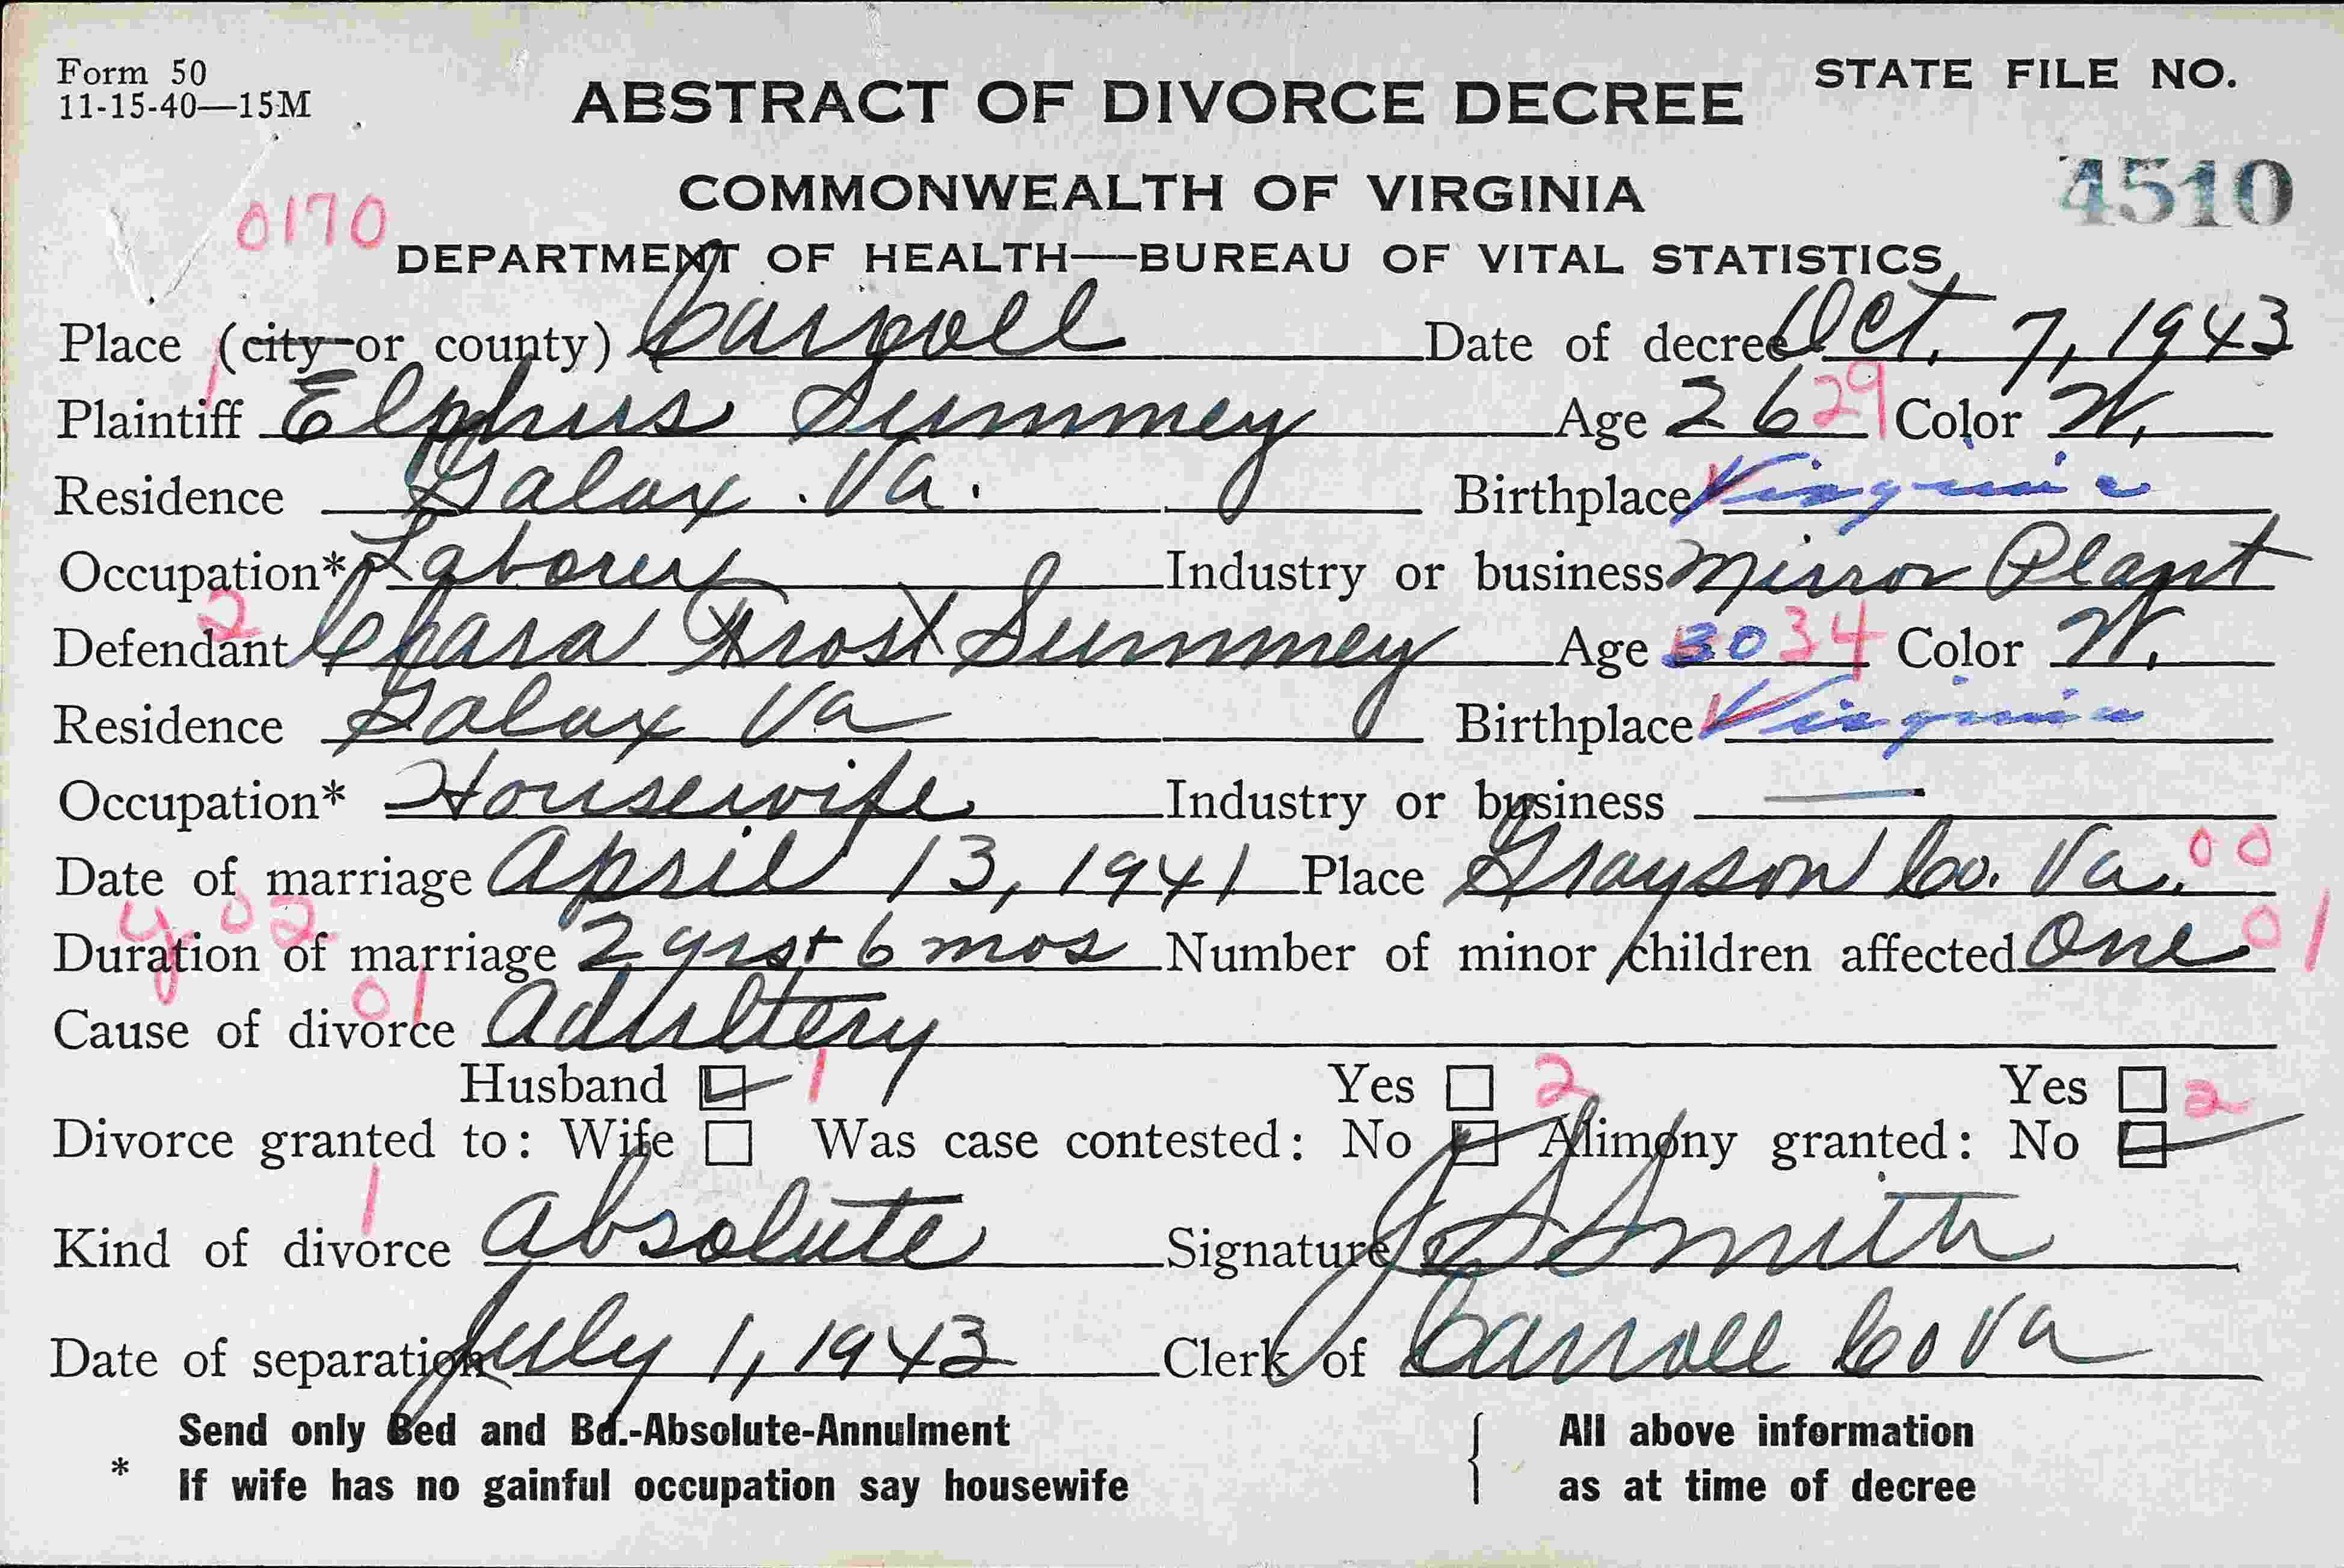 Form 50
11-15-40—15M
STATE FILE NO.
ABSTRACT OF DIVORCE DECREE
4510
COMMONWEALTH OF VIRGINIA
0170
DEPARTMENT OF HEALTH—BUREAU OF VITAL STATISTICS
Place (city or county) Carroll Date of decree Oct. 7, 1943
1
Plaintiff Elphus Summey Age 26 29 Color W.
Residence Galax. Va. Birthplace Virginia
Occupation* Laborer Industry or business Mirror Plant
2
Defendant Chara Frost Summey Age 30 34 Color W.
Residence Galax Va Birthplace Virginia
Occupation* Housewife Industry or business —
Date of marriage April 13, 1941 Place Grayson Co. Va. 00
y 02
Duration of marriage 2 yrs + 6 mos Number of minor children affected One 01
01
Cause of divorce Adultery
Husband 1 Yes 2 Yes 2
Divorce granted to: Wife Was case contested: No Alimony granted: No
1
Kind of divorce Absolute Signature J S Smith
Date of separation July 1, 1943 Clerk of Carroll Co Va
Send only Bed and Bd.-Absolute-Annulment
* If wife has no gainful occupation say housewife
All above information
as at time of decree